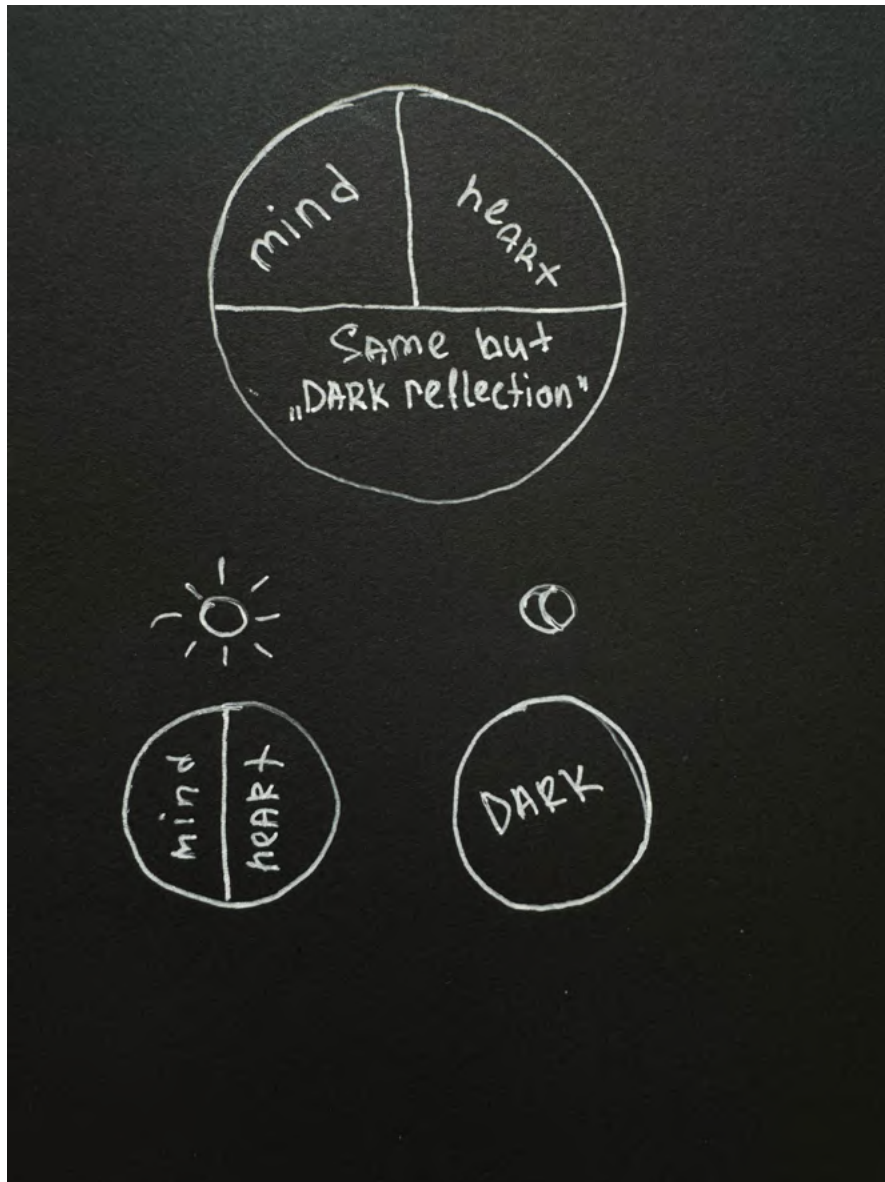 mind
heARt
SAme but
„DARK reflection"
mind
heARt
DARK